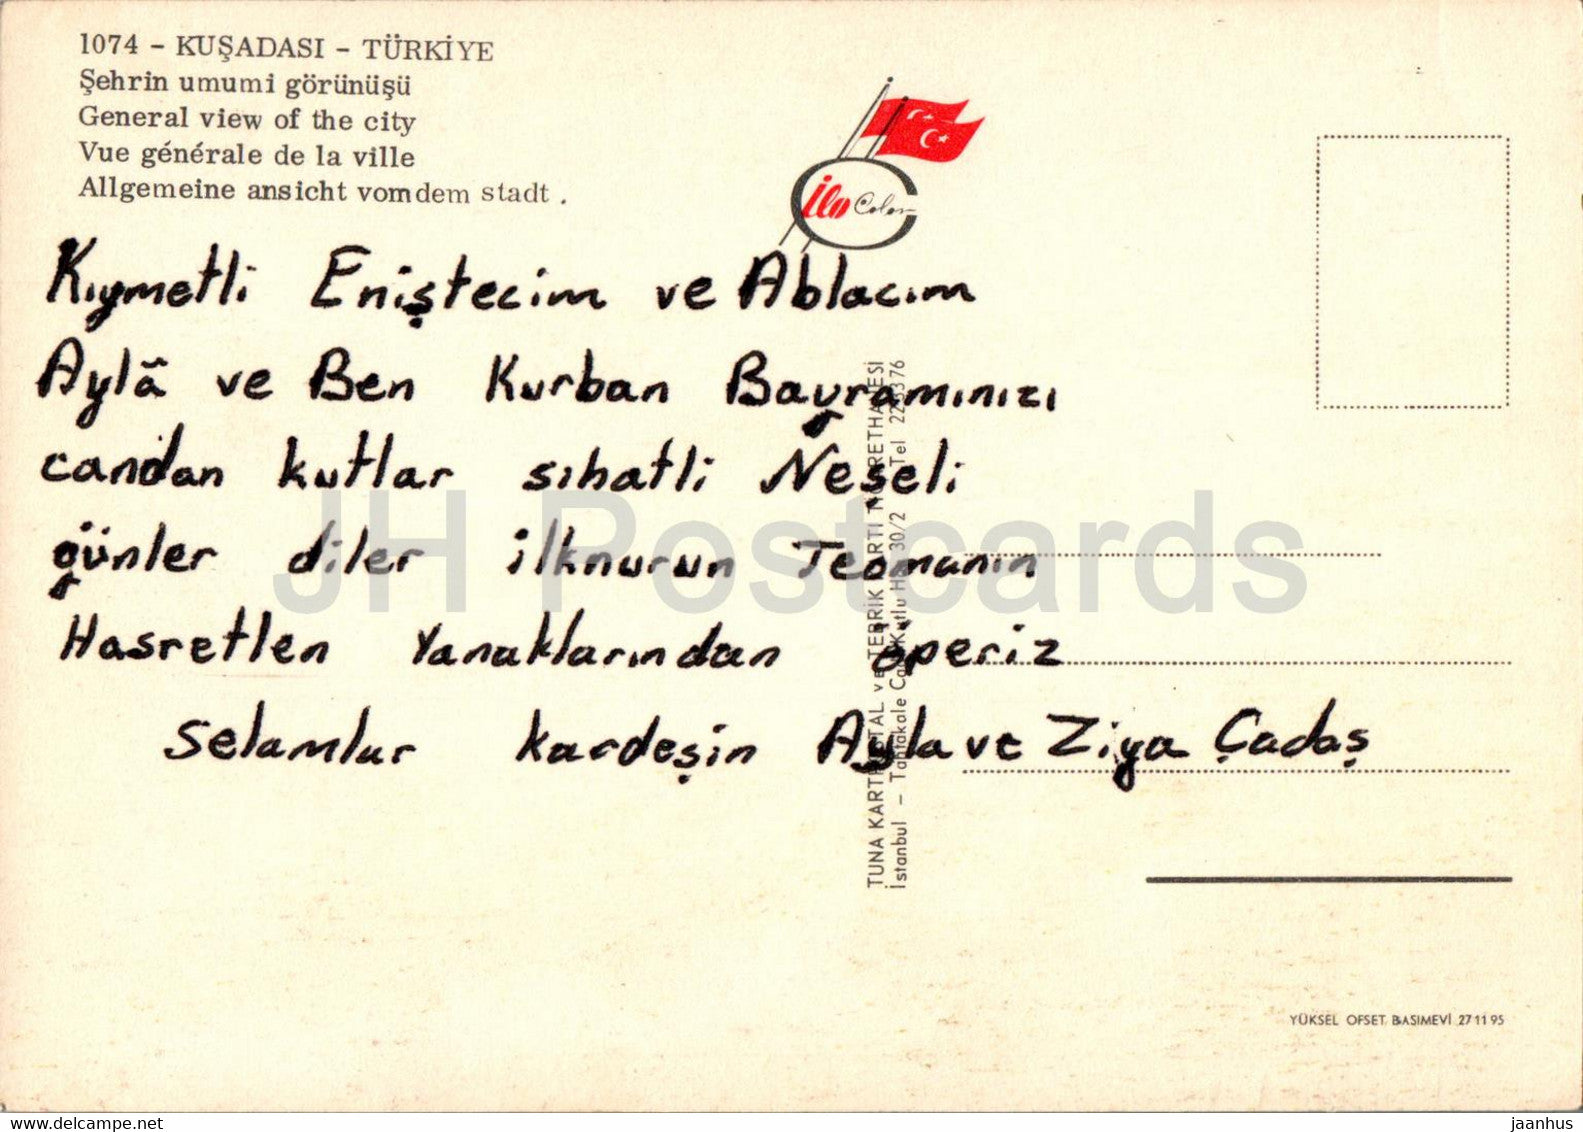 1074 - KUŞADASI - TÜRKİYE
Şehrin umumi görünüşü
General view of the city
Vue générale de la ville
Allgemeine ansicht vomdem stadt .
İlo Color
Kıymetli Eniştecim ve Ablacım
Aylâ ve Ben Kurban Bayramınızı
candan kutlar sıhatli Neşeli
günler diler ilknurun Teomanın
Hasretlen Yanaklarından öperiz
selamlar kardeşin Ayla ve Ziya Çadaş
TUNA KARTPOSTAL ve TEBRİK KARTI
İstanbul - Tahtakale Tel
JH Postcards
YÜKSEL OFSET BASIMEVİ 27 11 95
www.delcampe.net
jaanhus